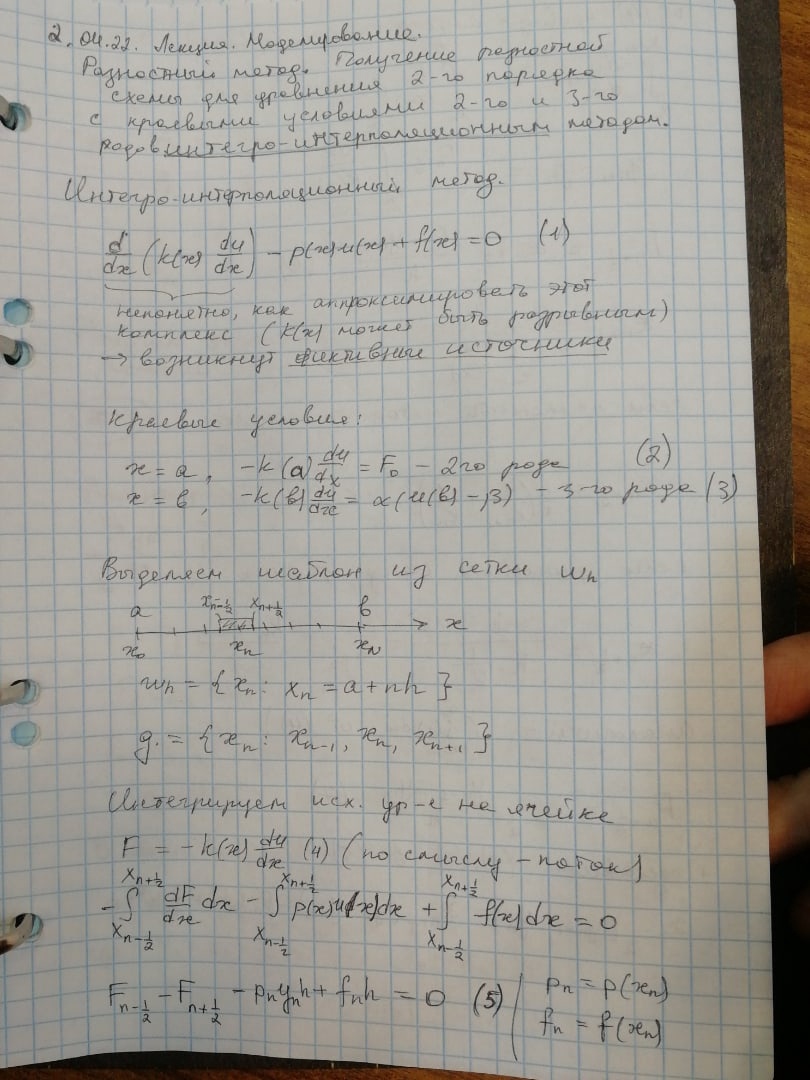 2.04.22. Лекция. Моделирование.
Разностный метод. Получение разностной
схемы для уравнения 2-го порядка
с краевыми условиями 2-го и 3-го
родов интегро-интерполяционным методом.
Интегро-интерполяционный метод.
d/dx (k(x) du/dx) - p(x)u(x) + f(x) = 0 (1)
непонятно, как аппроксимировать этот
комплекс (k(x) может быть разрывным)
→ возникнут фиктивные источники
Краевые условия:
x = a, -k(a) du/dx = F₀ - 2го рода (2)
x = b, -k(b) du/dx = α(u(b) - β) - 3-го рода (3)
Выделяем шаблон из сетки ωₕ
a xₙ₋½ xₙ₊½ b
x
x₀ xₙ x_N
ωₕ = {xₙ: xₙ = a + nh}
g. = {xₙ: xₙ₋₁, xₙ, xₙ₊₁}
Интегрируем исх. ур-е на ячейке
F = -k(x) du/dx (4) (по смыслу - поток)
xₙ₊½ xₙ₊½ xₙ₊½
-∫ dF/dx dx - ∫ p(x)u(x)dx + ∫ f(x)dx = 0
xₙ₋½ xₙ₋½ xₙ₋½
Fₙ₋½ - Fₙ₊½ - pₙyₙh + fₙh = 0 (5)
pₙ = p(xₙ)
fₙ = f(xₙ)